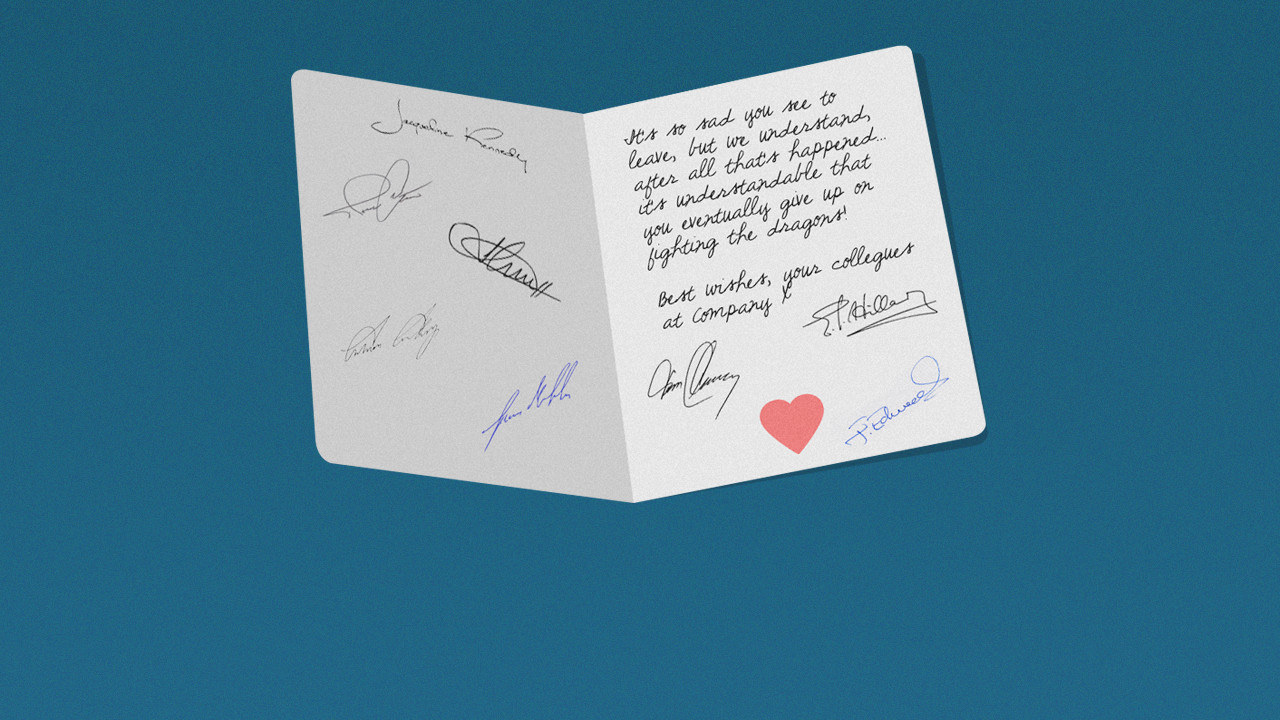 Jacqueline Kennedy
It's so sad you see to
leave, but we understand,
after all that's happened...
it's understandable that
you eventually give up on
fighting the dragons!
Best wishes, your collegues
at Company X
E.P. Hillary
Tom Clancy
P. Edwards